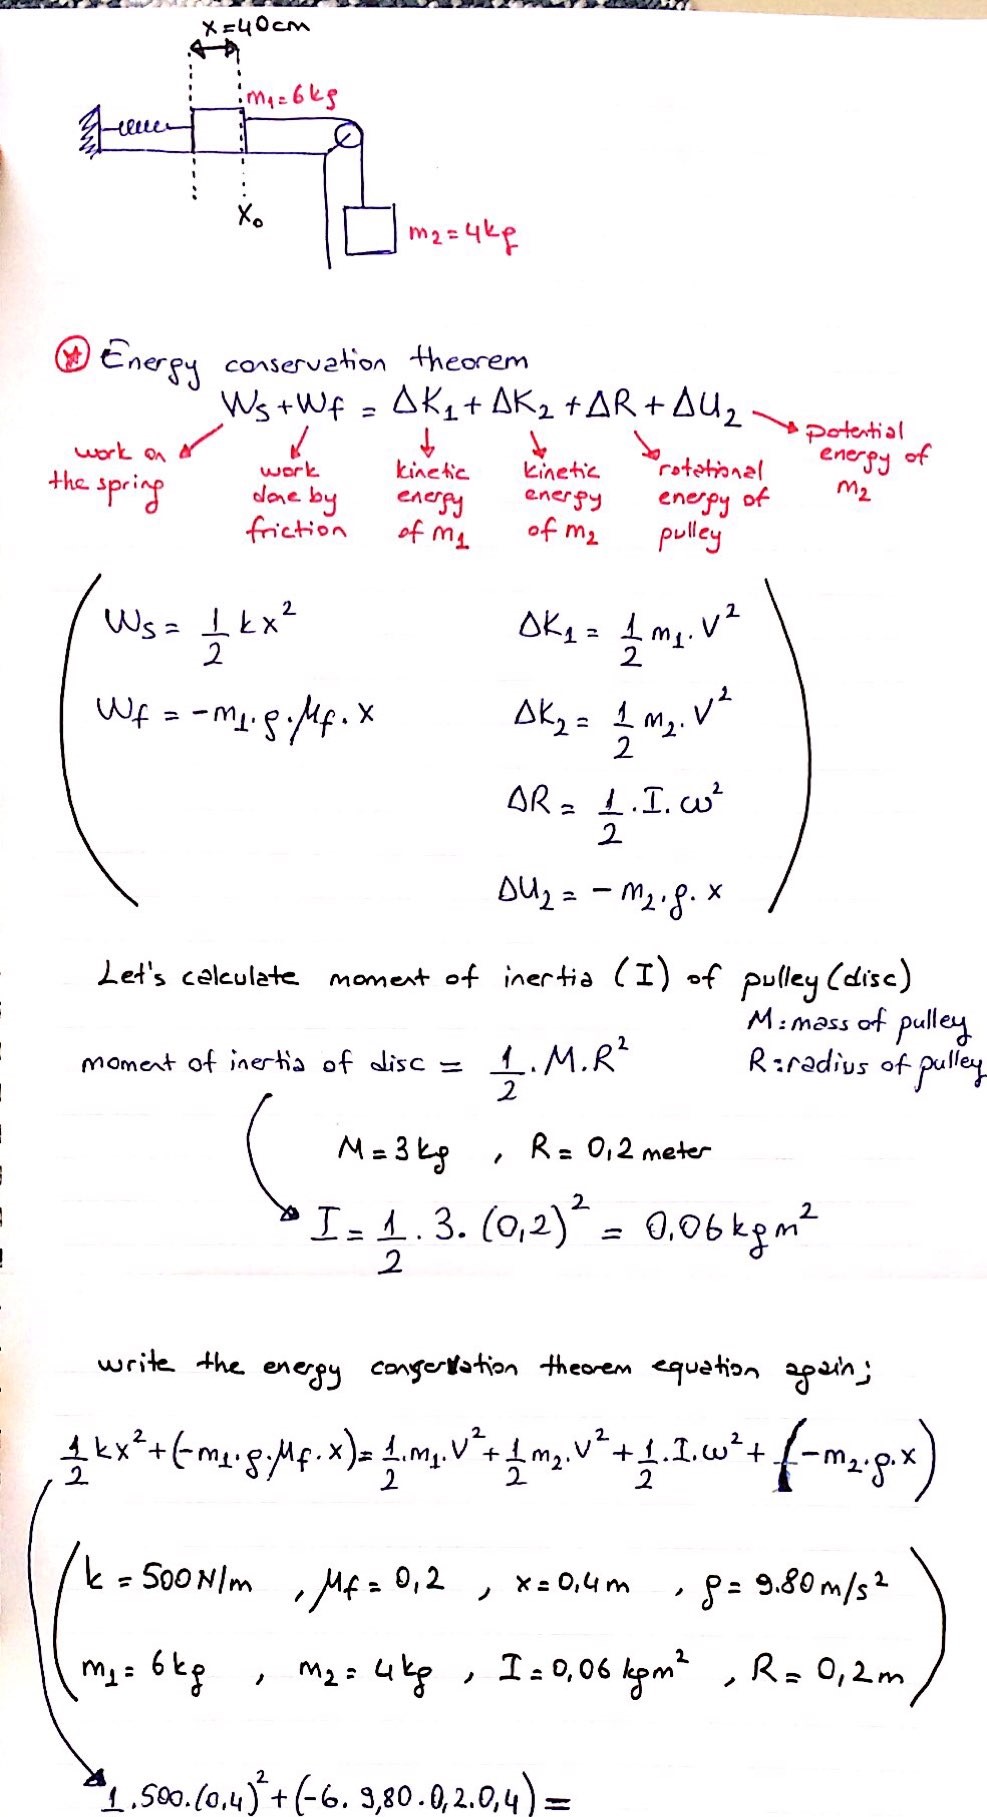 x=40cm
m₁=6kg
x₀
m₂=4kg
Energy conservation theorem
Ws+Wf = ΔK₁+ΔK₂+ΔR+ΔU₂
work on the spring
work done by friction
kinetic energy of m₁
kinetic energy of m₂
rotational energy of pulley
potential energy of m₂
Ws = 1/2 kx²
ΔK₁ = 1/2 m₁.V²
Wf = -m₁.g.μf.x
ΔK₂ = 1/2 m₂.V²
ΔR = 1/2.I.ω²
ΔU₂ = -m₂.g.x
Let's calculate moment of inertia (I) of pulley (disc)
M:mass of pulley
moment of inertia of disc = 1/2.M.R²
R:radius of pulley
M=3kg , R=0,2 meter
I=1/2.3.(0,2)² = 0,06kgm²
write the energy conservation theorem equation again;
1/2kx²+(-m₁.g.μf.x)=1/2.m₁.V²+1/2m₂.V²+1/2.I.ω²+(-m₂.g.x)
k=500N/m , μf=0,2 , x=0,4m , g=9.80m/s²
m₁=6kg , m₂=4kg , I=0,06kgm² , R=0,2m
1.500.(0,4)²+(-6.9,80.0,2.0,4)=